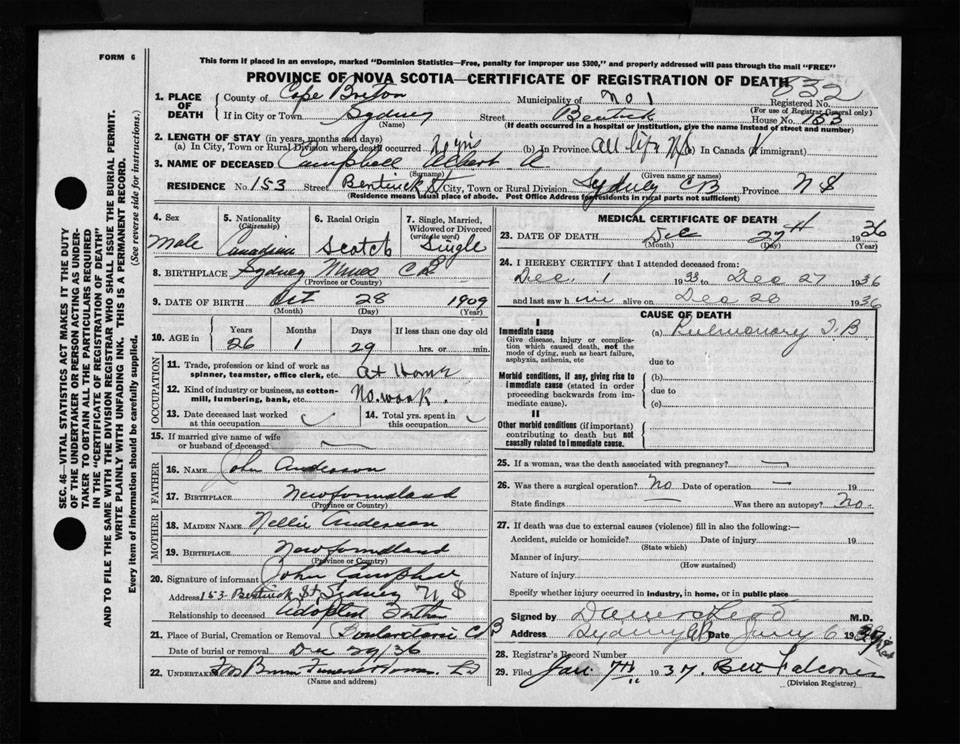 FORM 6
This form if placed in an envelope, marked "Dominion Statistics—Free, penalty for improper use $300," and properly addressed will pass through the mail "FREE"
PROVINCE OF NOVA SCOTIA—CERTIFICATE OF REGISTRATION OF DEATH
832
Registered No.
(For use of Registrar General only)
1. PLACE OF DEATH
County of Cape Breton Municipality of No 1
If in City or Town Sydney Street Bentinck House No. 153
(Name) (If death occurred in a hospital or institution, give the name instead of street and number)
2. LENGTH OF STAY (in years, months and days)
(a) In City, Town or Rural Division where death occurred 2 yrs (b) In Province all life NS (c) In Canada (if immigrant)
3. NAME OF DECEASED Campbell Albert A
(Surname) (Given name or names)
RESIDENCE No. 153 Street Bentinck St City, Town or Rural Division Sydney CB Province N S
(Residence means usual place of abode. Post Office Address for residents in rural parts not sufficient)
4. Sex Male
5. Nationality (Citizenship) Canadian
6. Racial Origin Scotch
7. Single, Married, Widowed or Divorced (write the word) Single
8. BIRTHPLACE Sydney Mines C B
(Province or Country)
9. DATE OF BIRTH Oct 28 1909
(Month) (Day) (Year)
10. AGE in Years Months Days If less than one day old
26 1 29 hrs. or min.
OCCUPATION
11. Trade, profession or kind of work as spinner, teamster, office clerk, etc. at Home
12. Kind of industry or business, as cotton-mill, lumbering, bank, etc. No work.
13. Date deceased last worked at this occupation
14. Total yrs. spent in this occupation
15. If married give name of wife or husband of deceased —
FATHER
16. NAME John Anderson
17. BIRTHPLACE Newfoundland
(Province or Country)
MOTHER
18. MAIDEN NAME Nellie Anderson
19. BIRTHPLACE Newfoundland
(Province or Country)
20. Signature of informant John Campbell
Address 153 Bentinck St Sydney N S
Relationship to deceased Adopted
21. Place of Burial, Cremation or Removal C B
Date of burial or removal Dec 29/36
22. UNDERTAKER Funeral Home
(Name and address)
MEDICAL CERTIFICATE OF DEATH
23. DATE OF DEATH Dec 27th 1936
(Month) (Day) (Year)
24. I HEREBY CERTIFY that I attended deceased from:
Dec 1 1933 to Dec 27 1936
and last saw him alive on Dec 26 1936
CAUSE OF DEATH
I
Immediate cause
Give disease, injury or complication which caused death, not the mode of dying, such as heart failure, asphyxia, asthenia, etc
(a) Pulmonary T.B
due to
Morbid conditions, if any, giving rise to immediate cause (stated in order proceeding backwards from immediate cause).
(b)
due to
(c)
II
Other morbid conditions (if important) contributing to death but not causally related to immediate cause.
25. If a woman, was the death associated with pregnancy? —
26. Was there a surgical operation? No Date of operation — 19
State findings — Was there an autopsy? No.
27. If death was due to external causes (violence) fill in also the following:—
Accident, suicide or homicide? Date of injury 19
(State which)
Manner of injury
(How sustained)
Nature of injury
Specify whether injury occurred in industry, in home, or in public place
Signed by M.D.
Address Sydney Date Jany 6 19
28. Registrar's Record Number
29. Filed Jan. 7th 1937. Bert Falconer
(Division Registrar)
SEC. 46—VITAL STATISTICS ACT MAKES IT THE DUTY
OF THE UNDERTAKER OR PERSON ACTING AS UNDER-
TAKER TO OBTAIN ALL THE PARTICULARS REQUIRED
IN THE "CERTIFICATE OF REGISTRATION OF DEATH"
AND TO FILE THE SAME WITH THE DIVISION REGISTRAR WHO SHALL ISSUE THE BURIAL PERMIT.
WRITE PLAINLY WITH UNFADING INK. THIS IS A PERMANENT RECORD.
Every item of information should be carefully supplied. (See reverse side for instructions.)